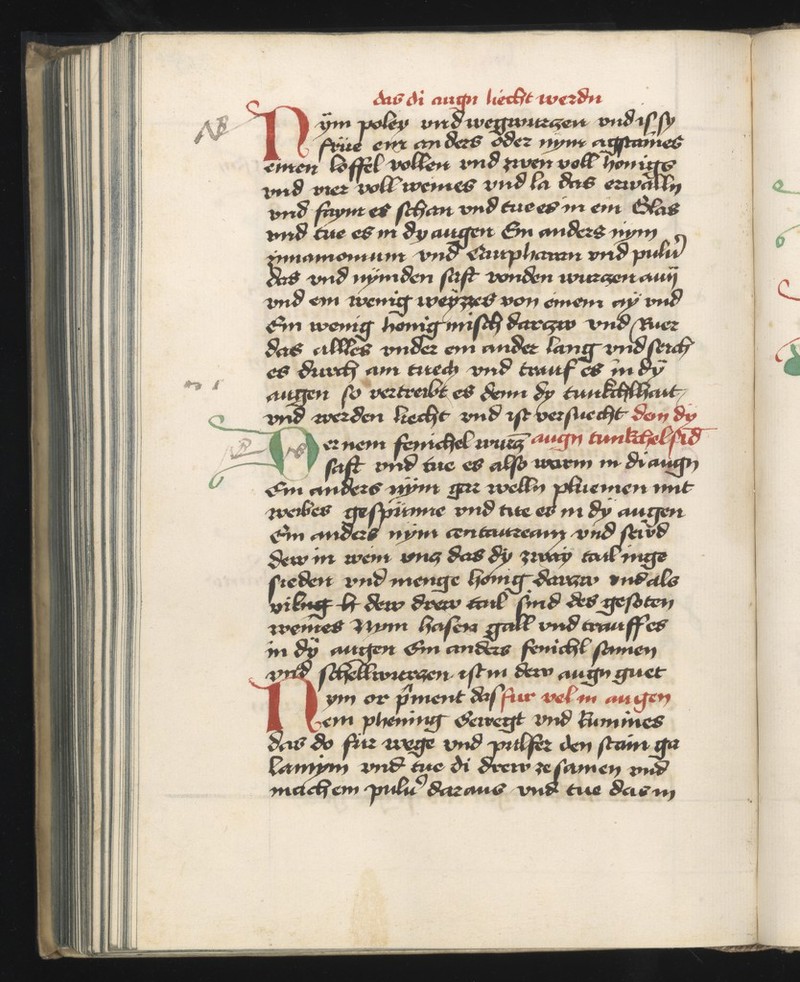 das di augn liecht werdn
NB
Nym poley vnd wegwurczen vnd is sy
frue ein anders oder nym agstaines
einen loffel vollen vnd zwen voll honigs
vnd vier voll weines vnd la das erwalln
vnd faym es schan vnd tue es in ein Glas
vnd tue es in dy augen Ein anders nym
zinamomum vnd vnd puluer
das vnd nym den saft von den wurczen
vnd ein wenig weyzzes von einem ay vnd
Ein wenig honig misch darczw vnd Ruer
das allles vnder ein ander lang vnd seich
es durch ain tuech vnd trauf es in dy
augen so vertreibt es denn dy tunkchlhait
vnd werden liecht vnd ist versuecht dem dy
NB
ernem fenichel wurcz augn tunkchel sind
saft vnd tue es also warm in di augn
Ein anders nym gar welln pluemen mit
weibes gespunne vnd tue es in dy augen
Ein anders nym centauream vnd seud
dew in wein vncz das dy zway tail inge
sieden vnd menge honig darczw vnd als
dew drew tail sind des gesoten
weines Nym hasen gall vnd trauff es
in dy augen Ein anders fenichl samen
vnd schellwurczen ist in dew augn guet
Nym or pment das fur vel in augen
ein phening Gewegt vnd kumines
das do fur wege vnd pulfer den stain gar
vnd tue di drew zesamen vnd
mach ein puluer daraus vnd tue das in